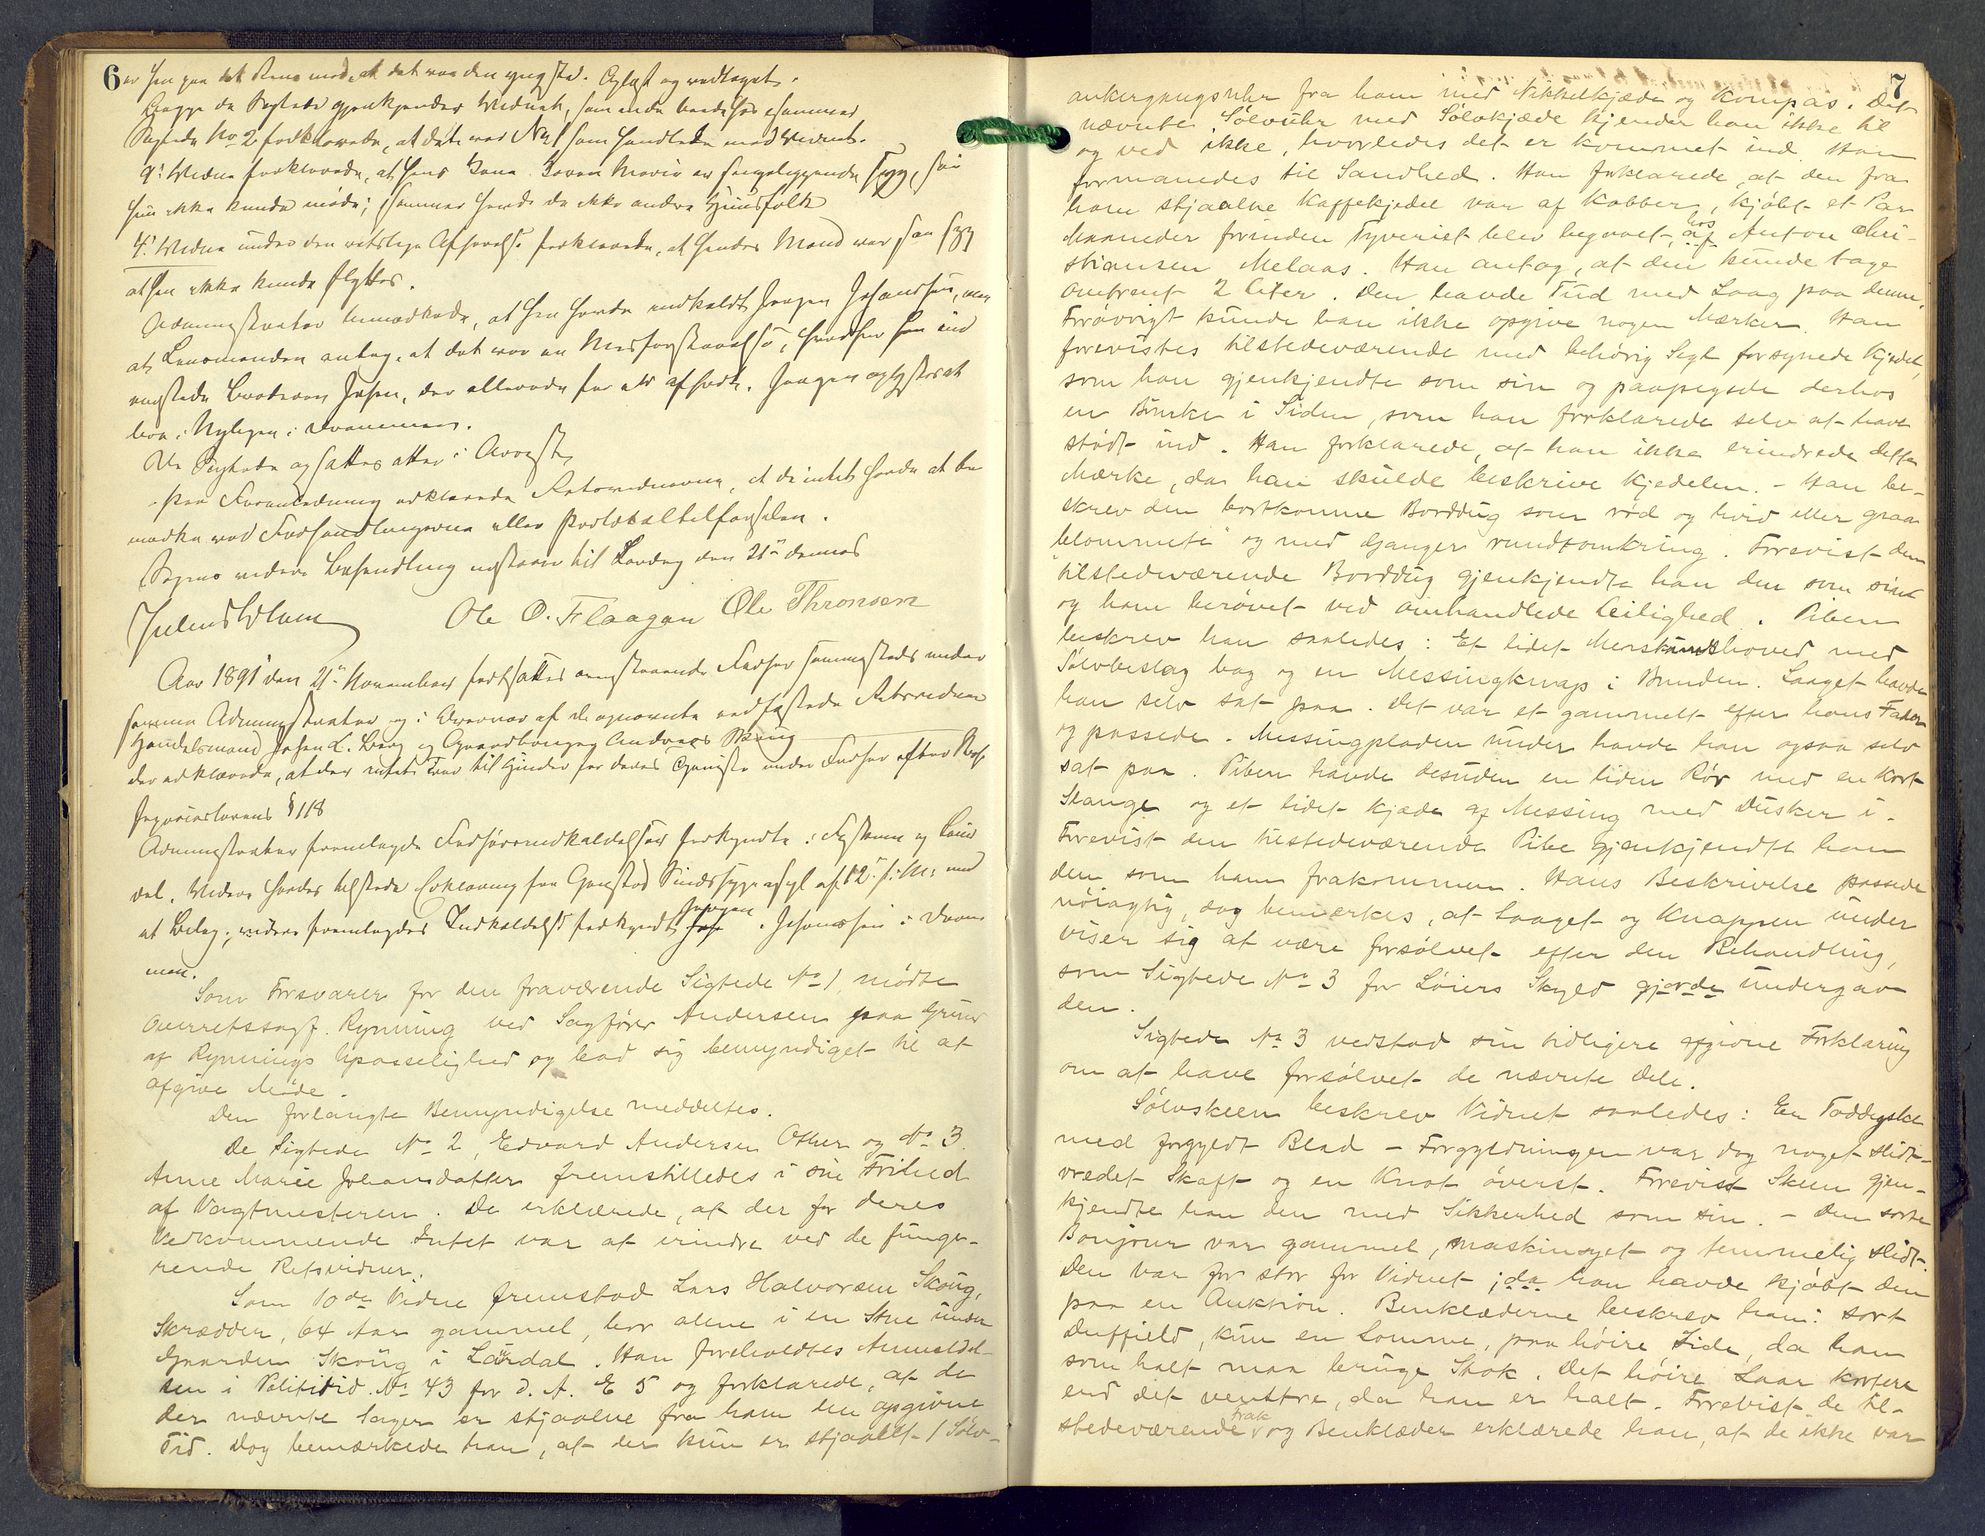 6
er han paa det Rene med, at det var den yngste. Oplæst og vedtaget.
Begge de Sigtede gjenkjender Vidnet, som endnu
Sigtede No 2 forklarede, at det var No 1 som handlede med Vidnet.
9de Vidne forklarede, at hans Kone Maria er sengeliggende syg, saa
hun ikke kunde møde; havde de ikke andre Huusfolk
4de Vidne under den Afhørelse forklarede, at hendes Mand var saa syg
at han ikke kunde flyttes.
Administrator bemærkede, at han havde indkaldt Jørgen Johansen, men
at Lensmanden antog, at det var en Misforstaaelse, hvorfor han ind
Broderen Johan, der allerede før er afhørt. Jørgen oplystes at
bo i Nyhagen i Drammen.
De Sigtede og sattes atter i Arrest
Paa Foranledning erklærede Retsvidnerne, at de intet havde at be
mærke ved Forhandlingerne eller Protokoltilførselen.
Sagens videre Behandling udstaar til Lørdag den 21de dennes
Ole O. Flaagan Ole Thronsen
Aar 1891 den 21de November fortsattes ovenstaaende Forhør sammesteds under
samme Administrator og i Overvær af de opnævnte edfæstede Retsvidner
Handelsmand Johan L. Berg og Gaardbruger Andreas
der erklærede, at der intet var til Hinder for deres Gjerning under Forhør efter Straffe
§ 118
Administrator fremlagde Forhørsindkaldelser forkyndte i og Laur
dal. Videre havdes tilstede Erklæring fra Gaustad Sindssygeasyl af 12te f. M. med
et Bilag; videre fremlagdes Indkaldelse forkyndt Jørgen Johansen i Dram
men.
Som Forsvarer for den fraværende Sigtede No 1, mødte
Overretssagf. Rynning ved Sagfører Andersen paa Grund
af Rynnings Upasselighed og bad sig bemyndiget til at
afgive Møde.
Den forlangte Bemyndigelse meddeltes.
De Sigtede No 2, Edvard Andersen Other og No 3
Anne Marie Johansdatter fremstilledes i sin Frihed
af Vagtmesteren. De erklærede, at der for deres
Vedkommende Intet var at erindre ved de funge-
rende Retsvidner.
Som 10de Vidne fremstod Lars Halvorsen Skoug,
Skrædder, 64 Aar gammel, bor alene i en Stue under
Gaarden Skoug i Lardal. Han foreholdtes Anmeldel-
sen i Politidid. No 43 for d. A. E 5 og forklarede, at de
der nævnte Sager er stjaalne fra ham den opgivne
Tid. Dog bemærkede han, at der kun er stjaalet 1 Sølv-
7
ankergangsuhr fra ham med Nikkelkjæde og Kompas. Det
nævnte Sølvuhr med Sølvkjæde kjender han ikke til
og ved ikke, hvorledes det er kommet ind. Han
formanedes til Sandhed. Han forklarede, at den fra
ham stjaalne Kaffekjedel var af Kobber, kjøbt et Par
Maaneder forinden Tyveriet blev begaaet, hos af Anton Chri-
stiansen Melaas. Han antog, at den kunde tage
omtrent 2 Liter. Den havde Tud med Laag paa denne,
Forøvrigt kunde han ikke opgive nogen Mærker. Han
forevistes tilstedeværende med behørig Segl forsynede Kjedel,
som han gjenkjendte som sin og paapegede derhos
en Bunke i Siden, som han forklarede selv at have
stødt ind. Han forklarede, at han ikke erindrede dette
Mærke, da han skulde beskrive Kjedelen. - Han be-
skrev den bortkomne Borddug som rød og hvid eller graa
"blommete" og med Ganger rundtomkring. Forevist den
tilstedeværende Borddug gjenkjendte han den som sin
og ham berøvet ved omhandlede Leilighed. Piben
beskrev han saaledes: Et lidet Merskumshoved med
Sølvbeslag bag og en Messingknap i Bunden. Laaget havde
han selv sat paa. Det var et gammelt efter hans Fader
og passede. Messingpladen under havde han ogsaa selv
sat paa. Piben havde desuden en liden Rør med en kort
Slange og et lidet Kjæde af Messing med Dusker i.
Forevist den tilstedeværende Pibe gjenkjendte han
den som ham frakommen. Hans Beskrivelse passede
nøiagtig, dog bemærkes, at Laaget og Knappen under
viser sig at være forsølvet efter den Behandling,
som Sigtede No 3 for Løiers Skyld gjorde undergav
den.
Sigtede No 3 vedstod sin tidligere afgivne Forklaring
om at have forsølvet de nævnte Dele.
Sølvskeen beskrev Vidnet saaledes: En Toddyske
med forgyldt Blad - Forgyldningen var dog noget slidt -
vredet Skaft og en Knot øverst. Forevist Skeen gjen-
kjendte han den med Sikkerhed som sin. - Den sorte
Bonjour var gammel, maskinsyet og temmelig slidt.
Den var for stor for Vidnet, da han havde kjøbt den
paa en Auktion. Benklæderne beskrev han: sort
Duffield, kun en Lomme, paa høire Side, da han
som halt maa bruge Stok. Det høire Laar kortere
end det venstre, da han er halt. Forevist de til-
stedeværende Frak og Benklæder erklærede han, at de ikke var